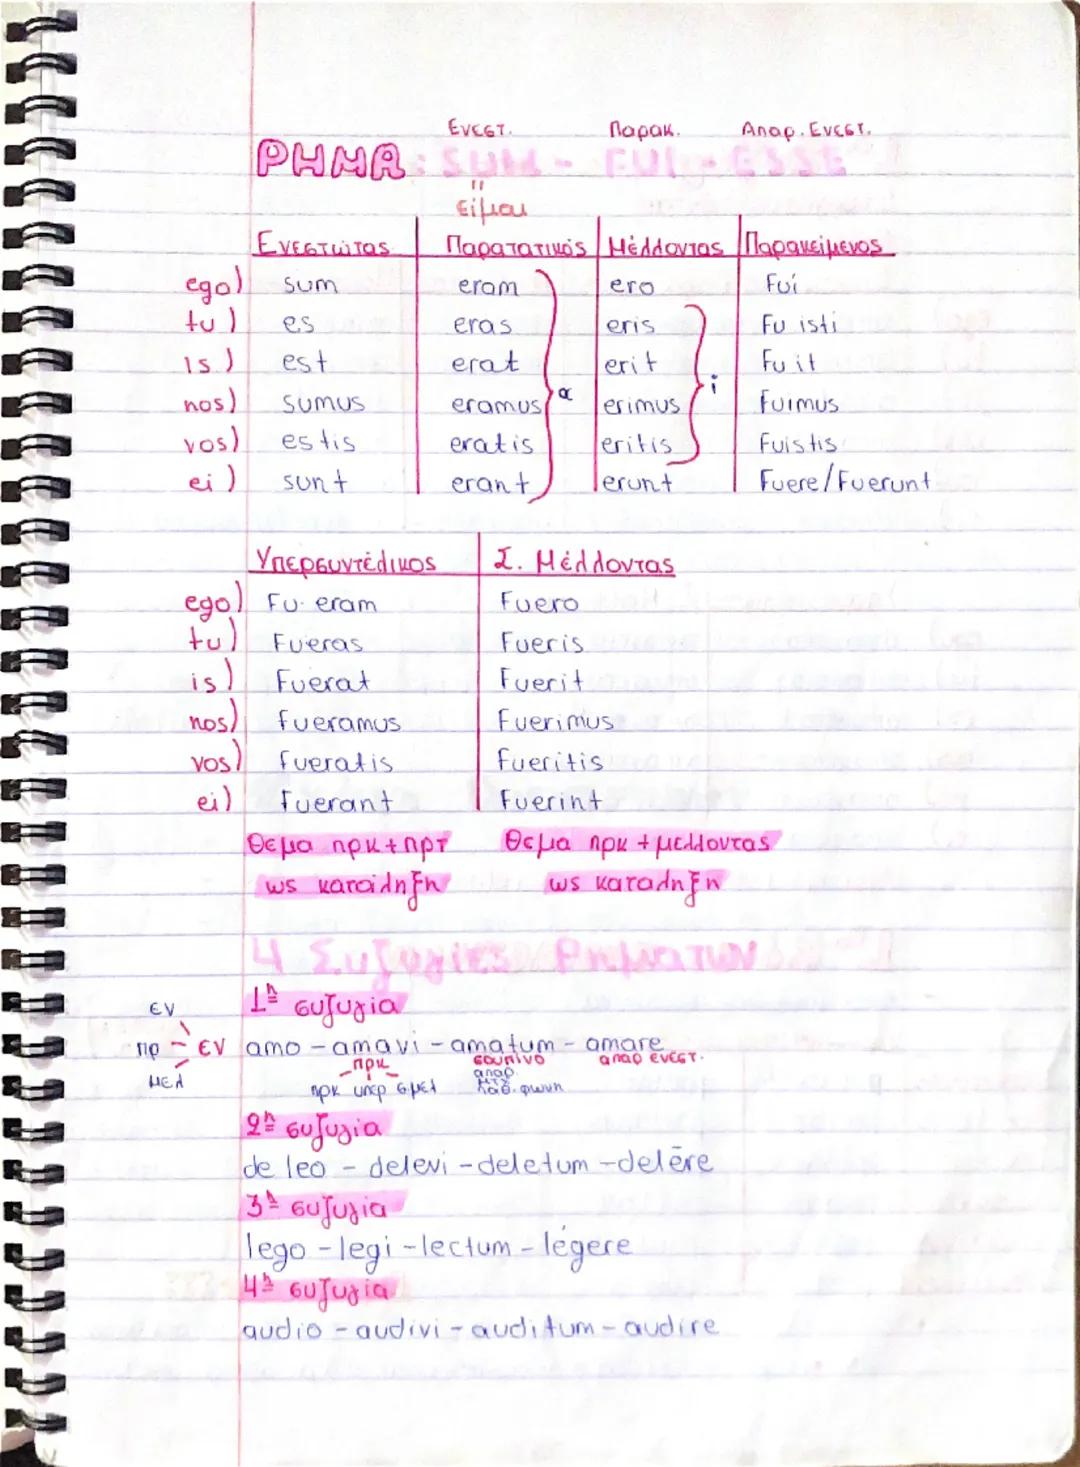 Ενεστ. Παρακ. Απαρ. Ενεστ.
ΡΗΜΑ: SUM - FUI - ESSE
"
είμαι
Ενεστώτας Παρατατικός Μέλλοντας Παρακείμενος
ego) sum eram ero Fui
tu) es eras eris Fu isti
is) est erat erit Fu it
nos) sumus eramus α erimus i fuimus
vos) estis eratis eritis Fuistis
ei) sunt erant erunt Fuere/Fuerunt
Υπερσυντέλικος Σ. Μέλλοντας
ego) Fu eram Fuero
tu) Fueras Fueris
is) Fuerat Fuerit
nos) fueramus Fuerimus
vos) fueratis fueritis
ei) fuerant Fuerint
Θέμα πρκ + πρτ Θέμα πρκ + μέλλοντας
ως κατάληξη ως κατάληξη
4 Συζυγίες Ρημάτων
1η συζυγία
εν
πρ - εν amo - amavi - amatum - amare
μελ πρκ σουπίνο απαρ ενεστ.
απαρ.
πρκ υπερ σμελ μτχ παθ. φωνη
2η συζυγία
de leo - delevi - deletum - delēre
3η συζυγία
lego - legi - lectum - légere
4η συζυγία
audio - audivi - auditum - audire